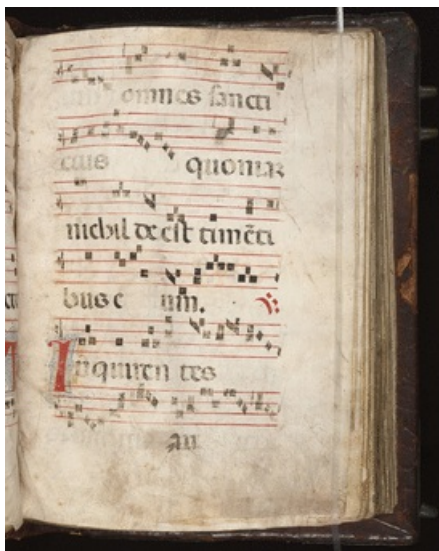 omnes sancti
eius quoniam
nichil deest timēti
bus eum.
Inquirentes
au